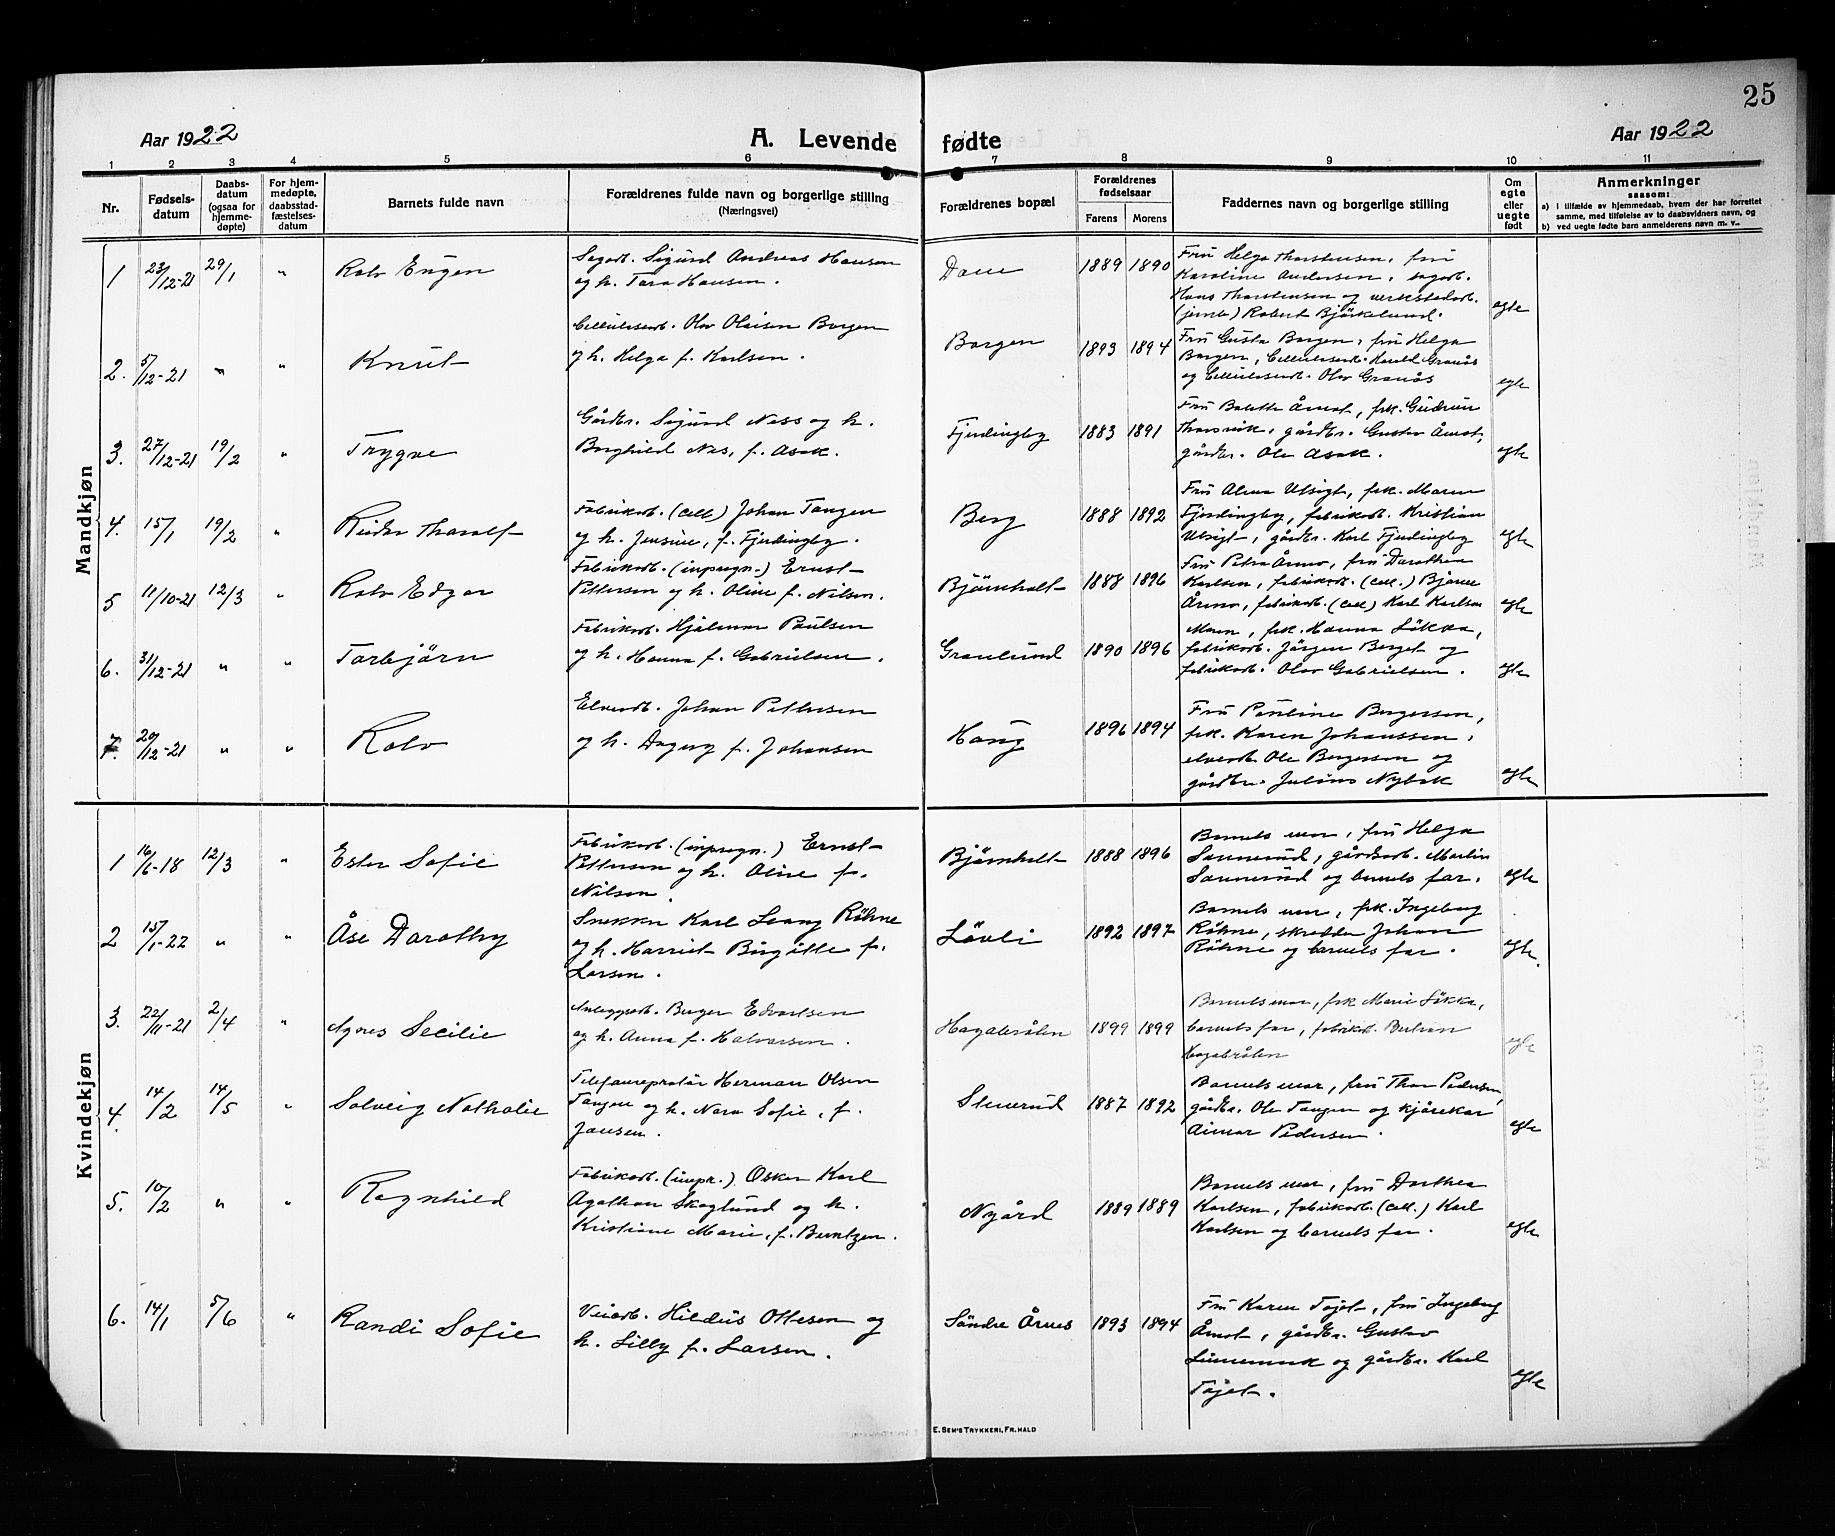 25
Aar 1922
A. Levende fødte
Aar 1922
1 2 3 4 5 6 7 8 9 10 11
Nr.
Fødsels-
datum
Daabs-
datum
(ogsaa for
hjemme-
døpte)
For hjem-
medøpte,
daabsstad-
fæstelses-
datum
Barnets fulde navn
Forældrenes fulde navn og borgerlige stilling
(Næringsvei)
Forældrenes bopæl
Forældrenes
fødselsaar
Farens Morens
Faddernes navn og borgerlige stilling
Om
egte
eller
uegte
født
Anmerkninger
saasom:
a) I tilfælde av hjemmedaab, hvem der har forrettet
samme, med tilføielse av to daabsvidners navn, og
b) ved uegte fødte barn anmelderens navn m. v.
Mandkjøn
1 23/12-21 29/1 " Rolv Eugen
Sagarb. Sigurd Andreas Hansen
og h. Tora Hansen.
1889 1890
Fru Helga Thorstensen, fru
Karoline Andersen, sagarb.
Hans Thorstensen og verkstedarb.
(jernb) Robert Bjørkelund.
egte
2. 5/12-21 " " Knut
Cellulosearb. Olav Olaisen Borgen
og h. Helga f. Karlsen.
Borgen 1893 1894
Fru Gusta Borgen, fru Helga
Borgen, Cellulosearb. Harald Granås
og Cellulosearb. Olav Granås
egte
3. 27/12-21 19/2 " Trygve
Gårdbr. Sigurd Næss og h.
Borghild Næs, f. Asak.
Fjerdingby 1883 1891
Fru Bolette Åmot, frk. Gudrun
Thorsvik, gårdbr. Gustav Åmot,
gårdbr. Ole Asak.
egte
4. 15/1 19/2 " Reidar Tharalf
Fabrikarb. (cell) Johan Tangen
og h. Jensine, f. Fjerdingby.
Berg 1888 1892
Fru Alma Utsigt, frk. Maren
Fjerdingby, fabrikarb. Kristian
Utsigt, gårdbr. Karl Fjerdingby
egte
5 11/10-21 12/3 " Rolv Edgar
Fabrikarb. (inpregn.) Ernst
Pettersen og h. Oline f. Nilsen.
Bjørnholt 1888 1896
Fru Petra Årmo, fru Dorothea
Karlsen, fabrikarb. (cell.) Bjarne
Årmo, fabrikarb. (cell) Karl Karlsen
egte
6. 31/12-21 " " Torbjørn
Fabrikarb. Hjalmar Paulsen
og h. Hanna f. Gabrielsen.
Granlund 1890 1896
Moren, frk. Hanna Løkka,
fabrikarb. Jørgen Berget og
fabrikarb. Olav Gabrielsen.
egte
7. 20/12-21 " " Rolv
Elvearb. Johan Pettersen
og h. Dagny f. Johansen
Haug 1896 1894
Fru Pauline Bergersen,
frk. Karen Johanssen,
elvearb. Ole Bergersen og
gårdbr. Julius Nybak
egte
Kvindekjøn
1 16/6-18 12/3 " Ester Sofie
Fabrikarb. (inpregn.) Ernst
Pettersen og h. Oline f.
Nilsen.
Bjørnholt 1888 1896
Barnets mor, fru Helga
Sannerud, gårdsarb. Martin
Sannerud og barnets far.
egte
2 15/1-22 " " Åse Dorothy
Snekker Karl Leang Røhne
og h. Harriet Birgitte f.
Larsen.
Løvli 1892 1897
Barnets mor, frk. Ingeborg
Røhne, skredder Johan
Røhne og barnets far.
egte.
3. 22/11-21 2/4 " Agnes Secilie
Anleggsarb. Birger Edvartsen
og h. Anna f. Halvorsen.
Hagabråten 1899 1899
Barnets mor, frk Marie Løkka,
barnets far, fabrikarb. Bertran
Hagabråten
egte
4. 14/2 14/5 " Solveig Nathalie
Telefonreparatør Herman Olsen
Tangen og h. Nora Sofie, f.
Jansen.
Stenerud 1887 1892
Barnets mor, fru Thora Pedersen,
gårdbr. Ole Tangen og kjørekar
Einar Pedersen.
egte
5. 10/2 " " Ragnhild
Fabrikarb. (impr.) Oskar Karl
Agathon Skoglund og h.
Kristiane Marie, f. Berntzen.
Nygård 1889 1889
Barnets mor, fru Dorthea
Karlsen, fabrikarb. (cell.) Karl
Karlsen og barnets far.
egte
6. 14/1 5/6 " Randi Sofie
Veiarb. Hildus Ottesen og
h. Lilly f. Larsen.
Søndre Årnes 1893 1894
Fru Karen Tøiet, fru Ingeborg
Åmot, gårdbr. Gustav
og gårdbr. Karl
Tøiet.
egte
E. SEM'S TRYKKERI, FR.HALD